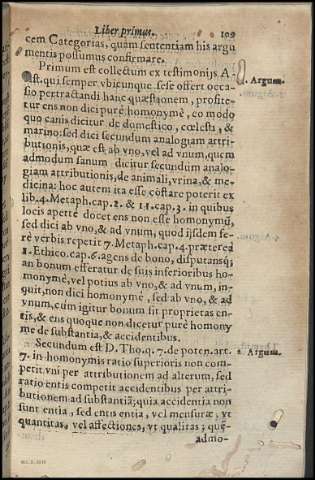 Liber primus. 109
cem Categorias, quàm sententiam his argu
mentis possumus confirmare.
Primum est collectum ex testimonijs A-
1. Argum.
rist. qui semper vbicunque sese offert occa
sio pertractandi hanc quæstionem, profite-
tur ens non dici purè homonymè, eo modo
quo canis dicitur de domestico, cœlesti, &
marino: sed dici secundum analogiam attri-
butionis, quæ est ab vno, vel ad vnum, quem
admodum sanum dicitur secundum analo-
giam attributionis, de animali, vrina, & me-
dicina: hoc autem ita esse cōstare poterit ex
lib. 4. Metaph. cap. 2. & 11. cap. 3. in quibus
locis apertè docet ens non esse homonymū,
sed dici ab vno, & ad vnum, quod ijsdem fe-
rè verbis repetit 7. Metaph. cap. 4. præterea
1. Ethico. cap. 6. agens de bono, disputansq;
an bonum efferatur de suis inferioribus ho-
monymè, vel potius ab vno, & ad vnum, in-
quit, non dici homonymè, sed ab vno, & ad
vnum, cùm igitur bonum sit proprietas en-
tis, & ens quoque non dicetur purè homony
me de substantia, & accidentibus.
Secundum est D. Tho. q. 7. de poten. art.
2. Argum.
7. in homonymis ratio superioris non com-
petit vni per attributionem ad alterum, sed
ratio entis competit accidentibus per attri-
butionem ad substantiā; quia accidentia non
sunt entia, sed entis entia, vel mensuræ, vt
quantitas, vel affectiones, vt qualitas; quē
admo-